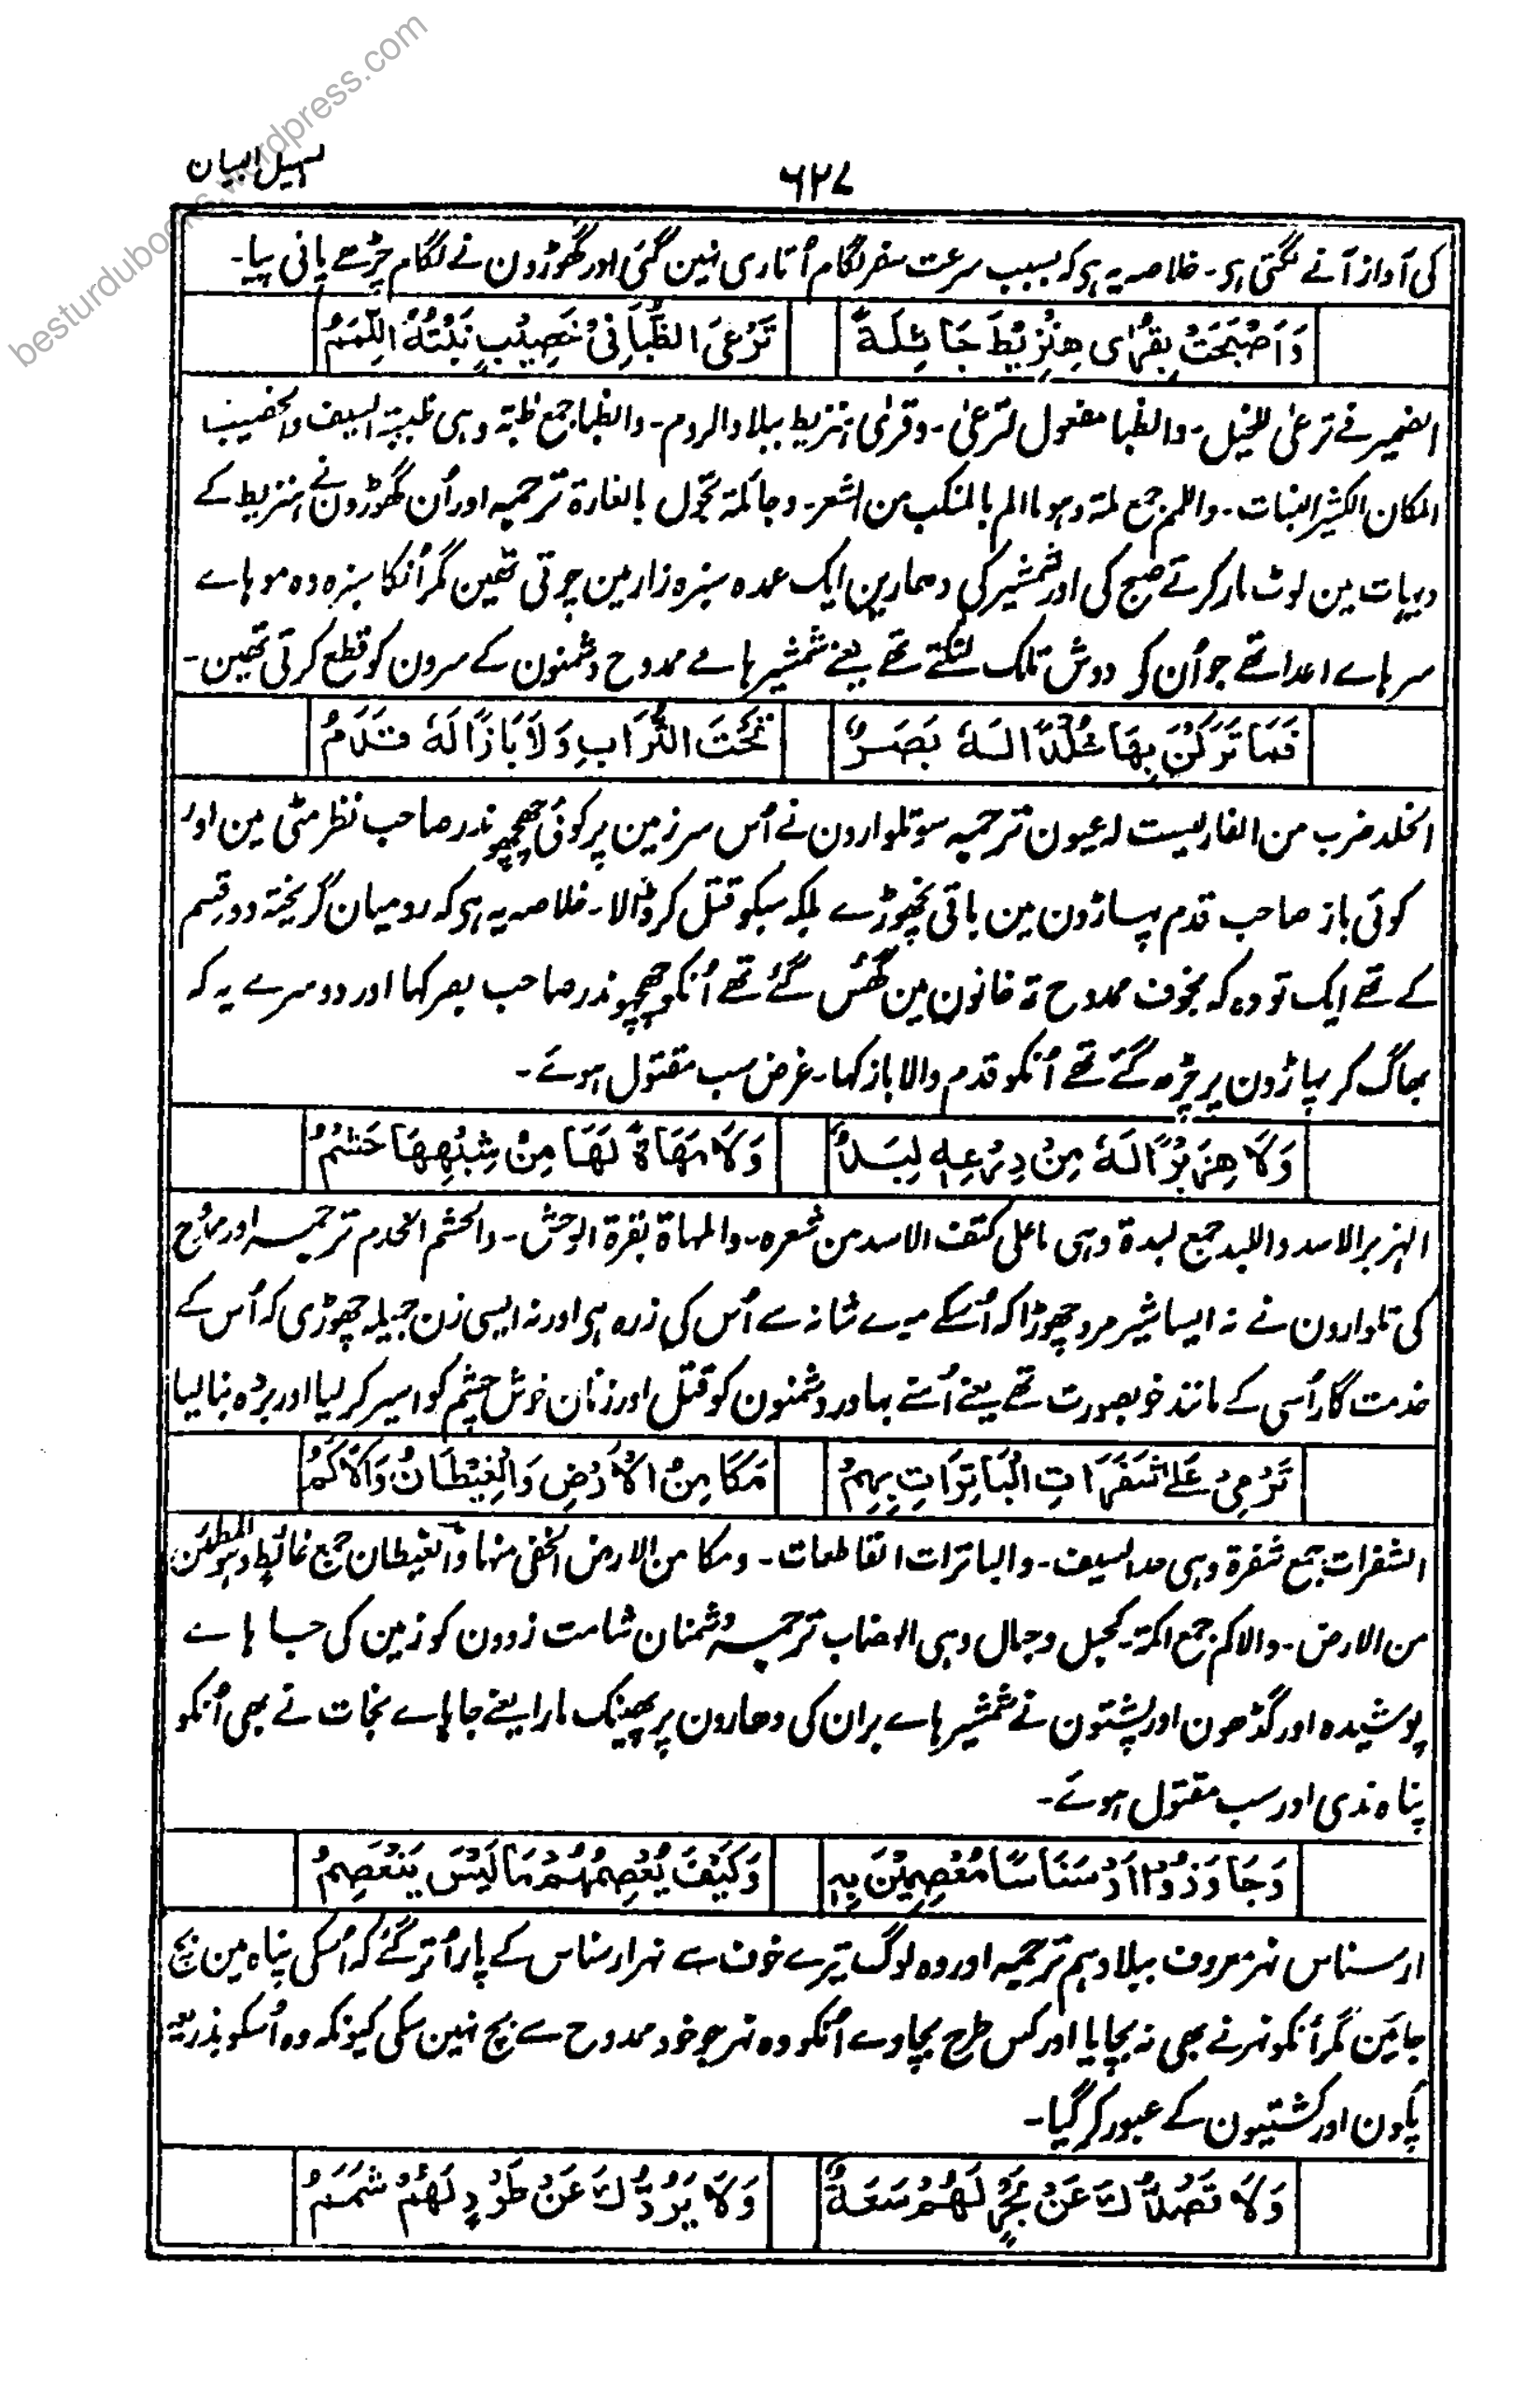 besturdubooks.wordpress.com
تسہیل البیان
۶۲۷
کی آواز آنے لگتی ہی۔ خلاصہ یہ ہی کہ بسبب سرعت سفر لگام اُتاری نہین گئی اور گھوڑون نے لگام چڑھے پانی پیا۔
وَاَصْبَحَتْ بِقُرٰی هِنْزِیْطَ جَائِلَةً تَرْعَی الظُّبَا فِیْ خَصِیْبٍ نَبْتُهُ اللِّمَمُ
الضمیر فے ترعیٰ للخیل۔ والظبا مفعول لترعیٰ۔ وقریٰ ہنزیط ببلاد الروم۔ والظبا جمع ظبۃ وہی ظبۃ السیف والخصیب
المکان الکثیر النبات۔ واللمم جمع لمۃ وہو ما الم بالمنکب من الشعر۔ وجائلۃ تجول بالغارۃ ترجمہ اور اُن گھوڑون نے ہنزیط کے
دیہات مین لوٹ مار کرتے صبح کی اور شمشیر کی دھارین ایک عمدہ سبزہ زار مین چرتی تھین مگر اُنکا سبزہ وہ موہاے
سر ہاے اعدا تھے جو اُن کی دوش تلک لٹکتے تھے یعنے شمشیر ہاے ممدوح دشمنون کے سرون کو قطع کرتی تھین۔
فَمَا تَرَکْنَ بِهَا خُلْدًا لَهُ بَصَرٌ تَحْتَ التُّرَابِ وَلَا بَازًا لَهُ قَدَمُ
الخلد ضرب من الفار لیست لہ عیون ترجمہ سو تلوارون نے اُس سرزمین پر کوئی چھچھوندر صاحب نظر مٹی مین اور
کوئی باز صاحب قدم پہاڑون مین باقی نچھوڑے بلکہ سبکو قتل کر ڈالا۔ خلاصہ یہ ہی کہ رومیان گریختہ دو قسم
کے تھے ایک تو وہ کہ بخوف ممدوح تہ خانون مین گھُس گئے تھے اُنکو چھچھوندر صاحب بصر کہا اور دوسرے یہ کہ
بھاگ کر پہاڑون پر چڑھ گئے تھے اُنکو قدم والا باز کہا۔ غرض سب مقتول ہوئے۔
وَلَا هِزَبْرًا لَهُ مِنْ دِرْعِهٖ لِبَدٌ وَلَا مَهَاةً لَهَا مِنْ شِبْهِهَا حَشَمُ
الہزبر الاسد واللبد جمع لبدۃ وہی ما علی کتف الاسد من شعرہ۔ والمہاۃ بقرۃ الوحش۔ والحشم الخدم ترجمہ اور ممدوح
کی تلوارون نے نہ ایسا شیر مرد چھوڑا کہ اُسکے موے شانہ سے اُس کی زرہ ہی اور نہ ایسی زن جمیلہ چھوڑی کہ اُس کے
خدمت گار اُسی کے مانند خوبصورت تھے یعنے اُسنے بہادر دشمنون کو قتل اور زنان خوش چشم کو اسیر کر لیا اور بردہ بنا لیا
تَرْمِیْ عَلٰی شَفَرَاتِ الْبَاتِرَاتِ بِهِمْ مَکَامِنُ الْاَرْضِ وَالْغِیْطَانُ وَالْاَکَمُ
الشفرات جمع شفرۃ وہی حد السیف۔ والباترات القاطعات۔ ومکامن الارض الخفی منہا والغیطان جمع غائط وہو المطمئن
من الارض۔ والاکم جمع اکمۃ کجبل وجبال وہی الہضاب ترجمہ دشمنان شامت زدون کو زمین کی جاہاے
پوشیدہ اور گڈھون اور پشتون نے شمشیر ہاے بران کی دھارون پر پھینک مارا یعنے جاہاے نجات نے بھی اُنکو
پناہ ندی اور سب مقتول ہوئے۔
وَجَاوَزُوْا اَرْسَنَاسًا مُعْصِمِیْنَ بِهٖ وَکَیْفَ یُعْصِمُهُمْ مَا لَیْسَ یَنْعَصِمُ
ارسناس نہر معروف ببلادہم ترجمہ اور وہ لوگ تیرے خوف سے نہر ارسناس کے پار اُتر گئے کہ اُسکی پناہ مین بچ
جائین مگر اُنکو نہر نے بھی نہ بچایا اور کس طرح بچاوے اُنکو وہ نہر جو خود ممدوح سے بچ نہین سکی کیونکہ وہ اُسکو بذریعہ
پلون اور کشتیون کے عبور کر گیا۔
وَلَا تَصُدُّكَ عَنْ بَحْرٍ لَهُمْ سَعَةٌ وَلَا یَرُدُّكَ عَنْ طَوْدٍ لَهُمْ شَمَمُ